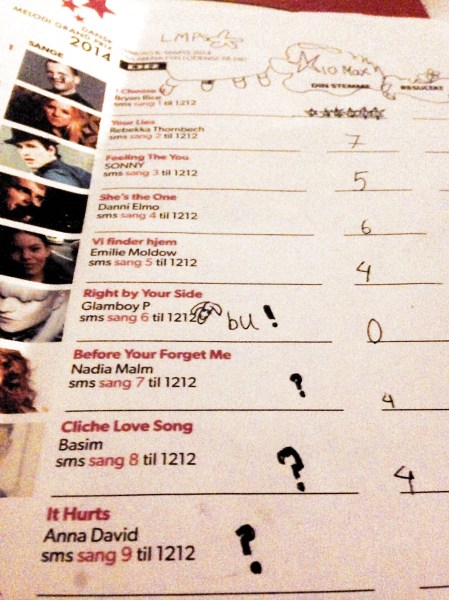 DANSK
MELODI GRAND PRIX
2014
SANGE
DR
10 Max
DIN STEMME
I Choose U
Bryan Rice
sms sang 1 til 1212
Your Lies
Rebekka Thornbech
sms sang 2 til 1212
7
Feeling The You
SONNY
sms sang 3 til 1212
5
She's the One
Danni Elmo
sms sang 4 til 1212
6
Vi finder hjem
Emilie Moldow
sms sang 5 til 1212
4
Right by Your Side
Glamboy P
sms sang 6 til 1212
bu!
0
Before Your Forget Me
Nadia Malm
sms sang 7 til 1212
?
4
Cliche Love Song
Basim
sms sang 8 til 1212
?
4
It Hurts
Anna David
sms sang 9 til 1212
?